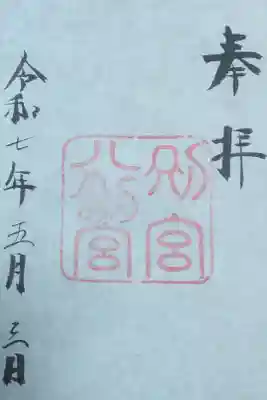 奉拝
別宮
八幡宮
令和七年五月三日